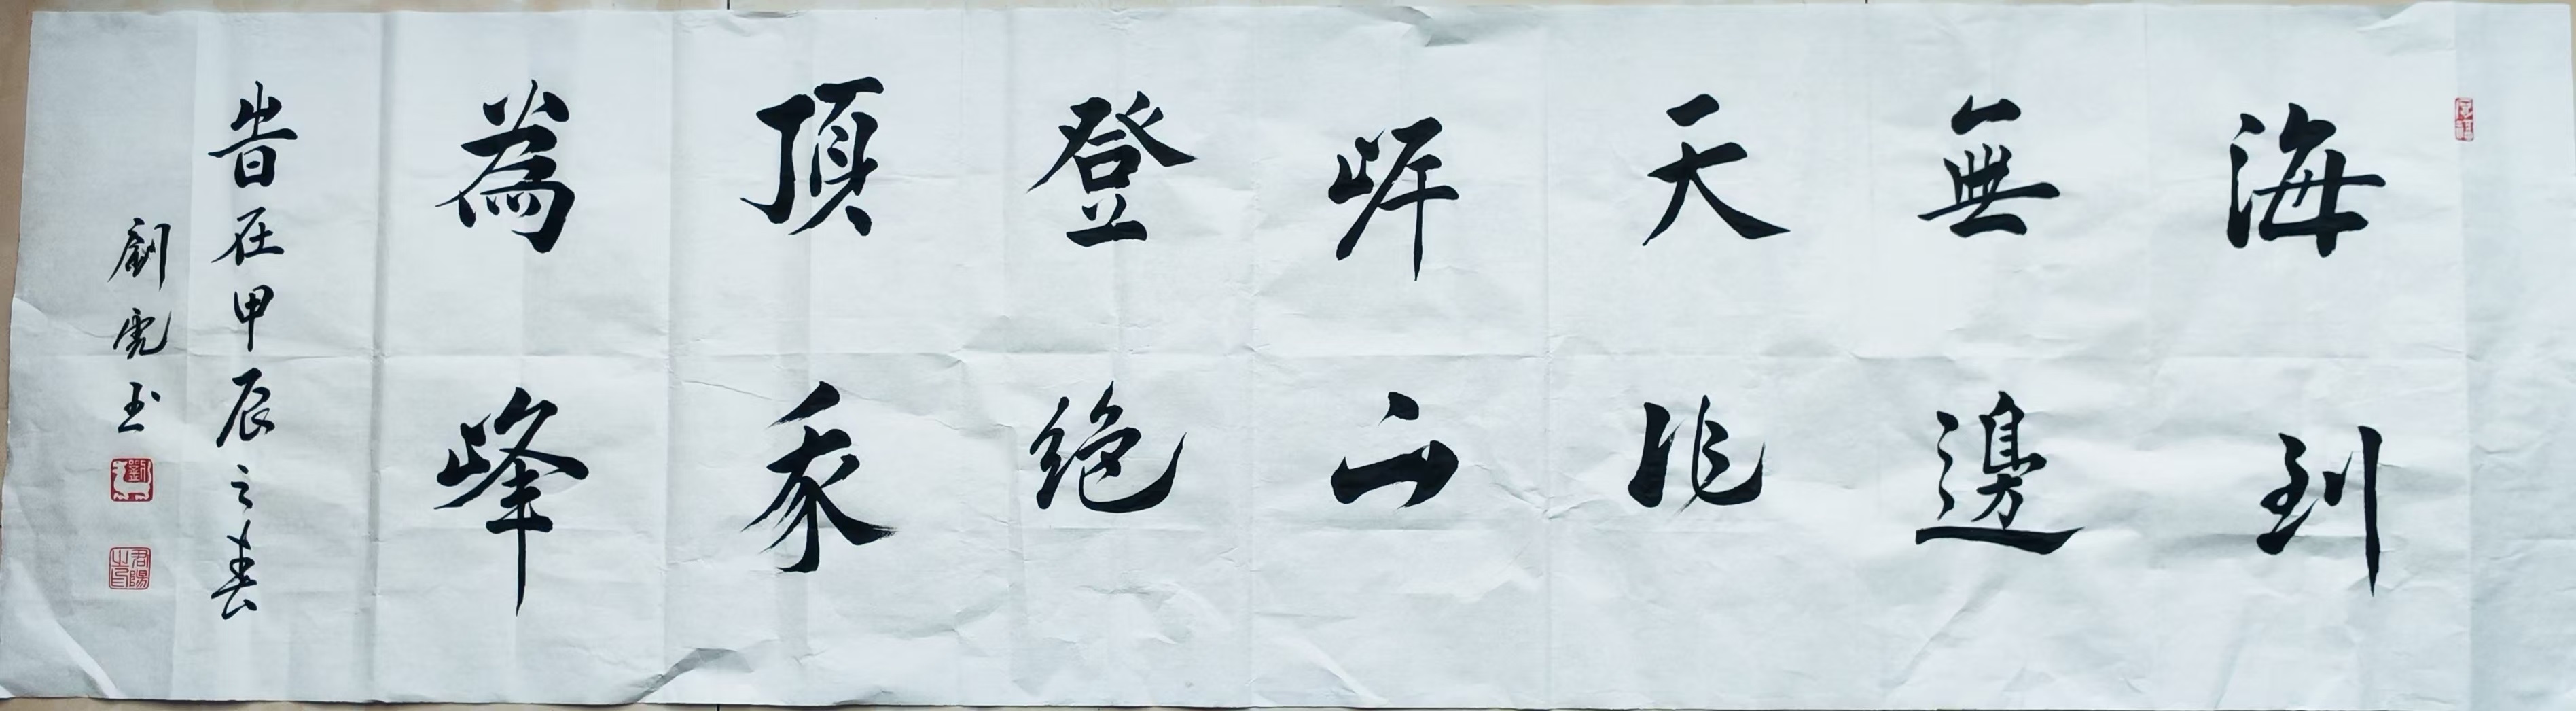 海到
無邊
天作
岸山
登絶
頂我
為峰
旹在甲辰之春
劉